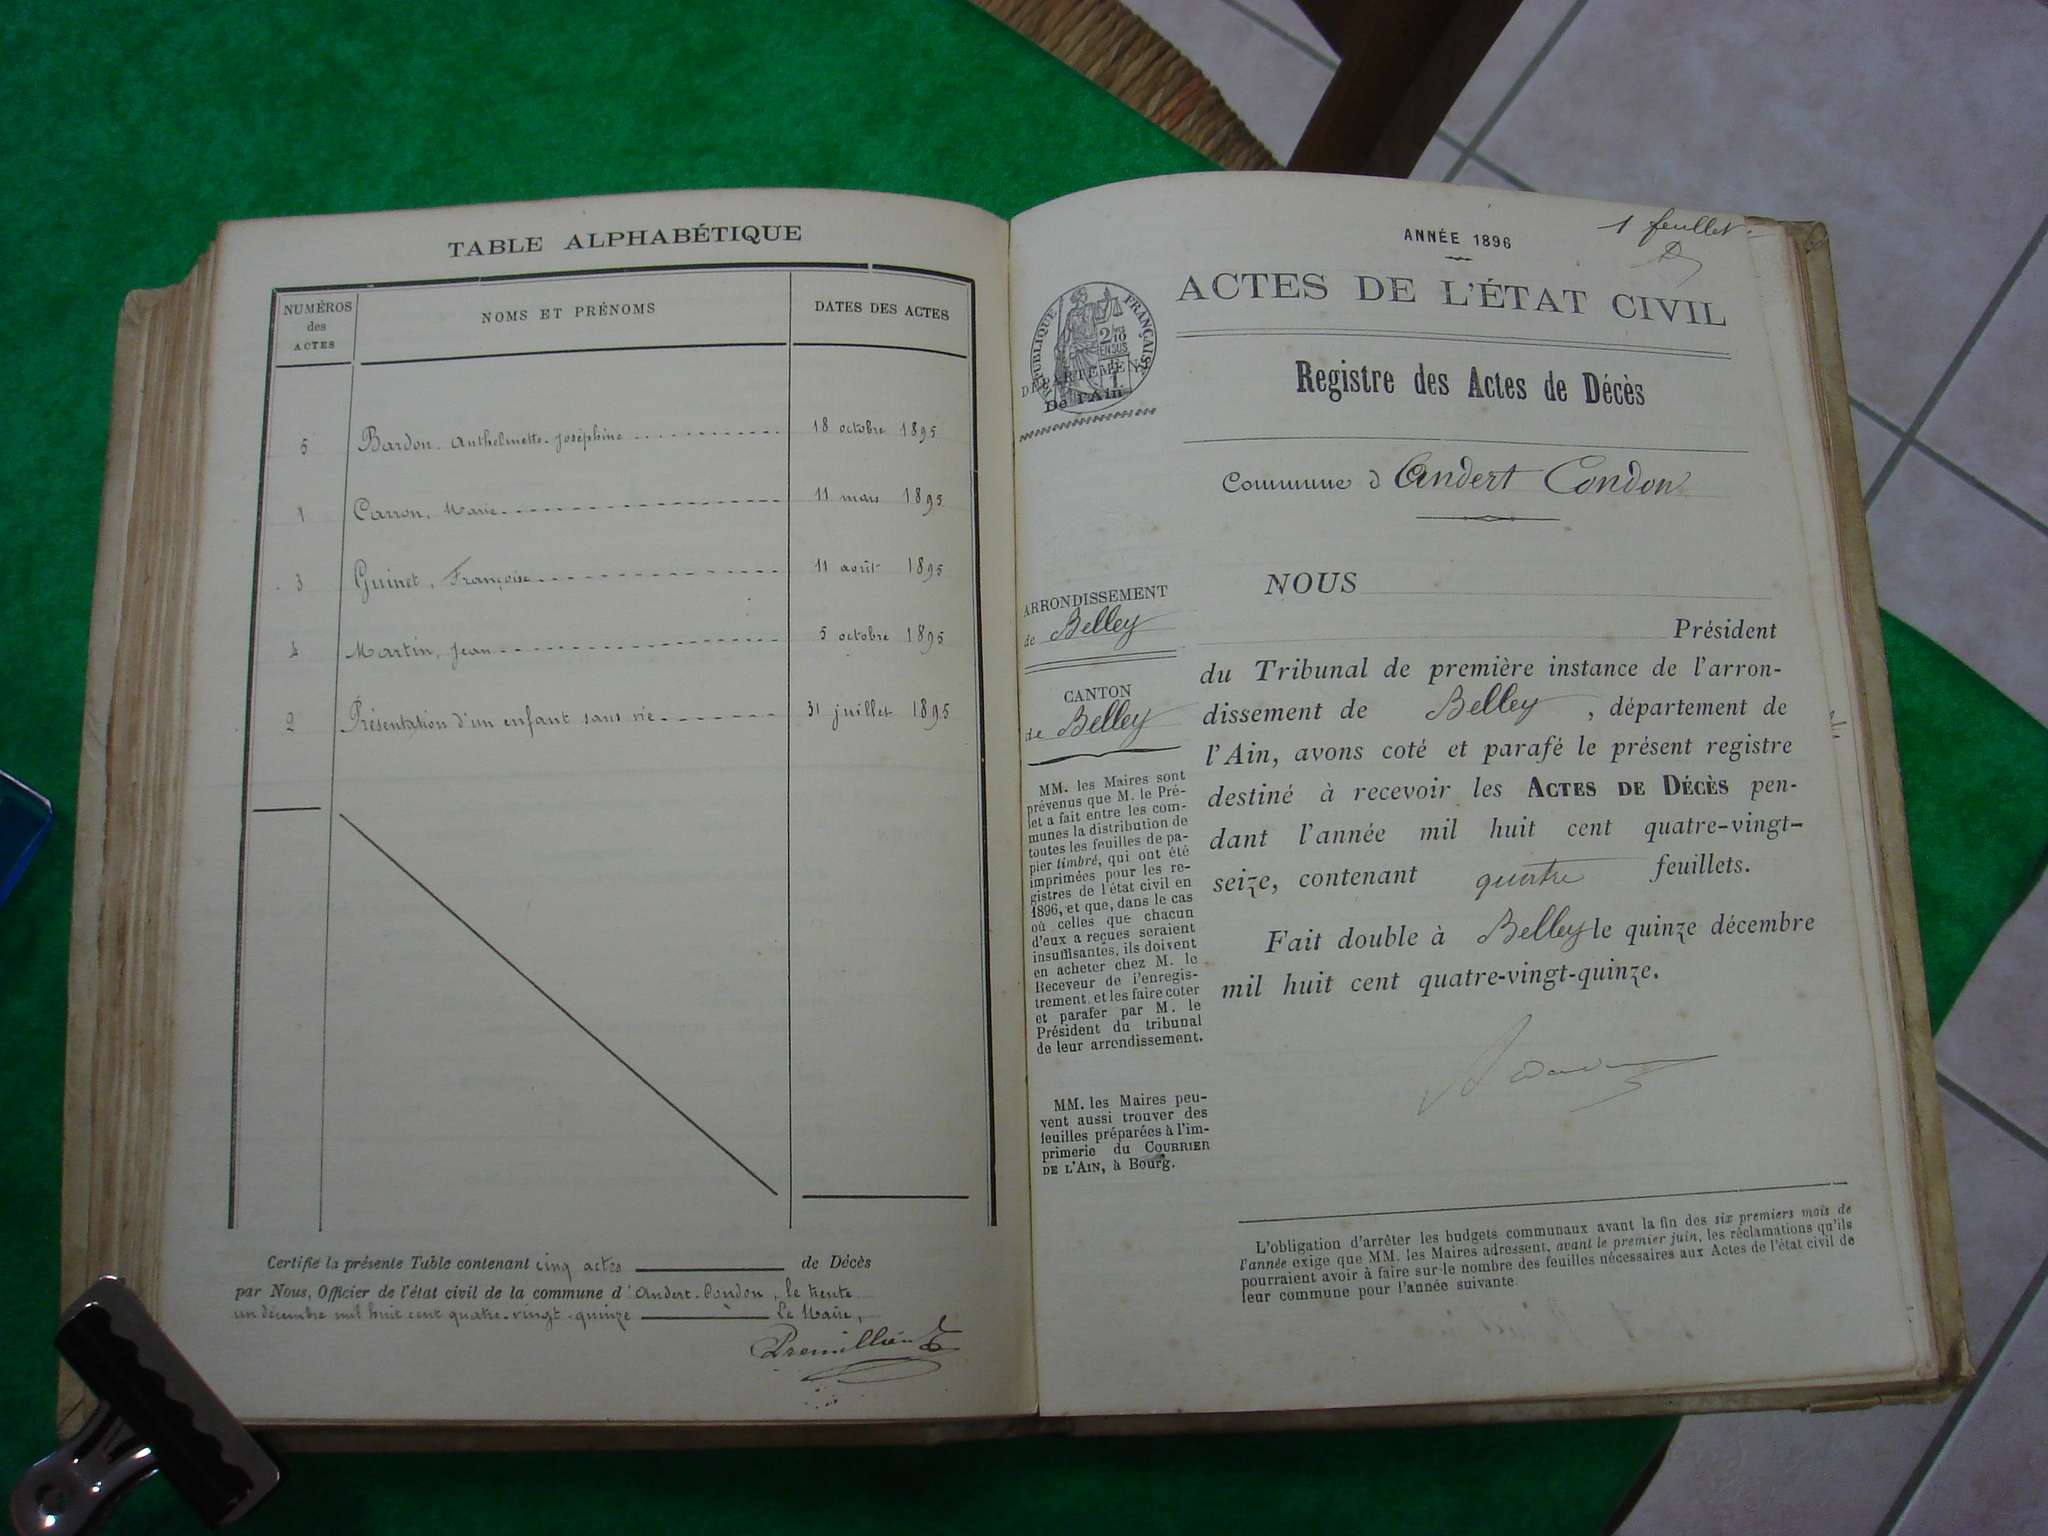 TABLE ALPHABÉTIQUE
NUMÉROS
des
ACTES
NOMS ET PRÉNOMS
DATES DES ACTES
5 Bardon. Anthelmette. Joséphine 18 octobre 1895
1 Carron, Marie 11 mars 1895
3 Guinet, Françoise 11 août 1895
4 Martin, Jean 5 octobre 1895
2 Présentation d'un enfant sans vie 31 juillet 1895
Certifie la présente Table contenant cinq actes de Décès
par Nous, Officier de l'état civil de la commune d'Andert-Condon, le trente
un décembre mil huit cent quatre-vingt-quinze Le Maire,
1 feuillet.
ANNÉE 1896
ACTES DE L'ÉTAT CIVIL
RÉPUBLIQUE FRANÇAISE
2/10
EN SUS
DÉPARTEMENT
De l'Ain
Registre des Actes de Décès
Commune d Andert Condon
ARRONDISSEMENT
de Belley
CANTON
de Belley
MM. les Maires sont
prévenus que M. le Pré-
fet a fait entre les com-
munes la distribution de
toutes les feuilles de pa-
pier timbré, qui ont été
imprimées pour les re-
gistres de l'état civil en
1896, et que, dans le cas
où celles que chacun
d'eux a reçues seraient
insuffisantes, ils doivent
en acheter chez M. le
Receveur de l'enregis-
trement, et les faire coter
et parafer par M. le
Président du tribunal
de leur arrondissement.
MM. les Maires peu-
vent aussi trouver des
feuilles préparées à l'im-
primerie du COURRIER
DE L'AIN, à Bourg.
NOUS
Président
du Tribunal de première instance de l'arron-
dissement de Belley, département de
l'Ain, avons coté et parafé le présent registre
destiné à recevoir les ACTES DE DÉCÈS pen-
dant l'année mil huit cent quatre-vingt-
seize, contenant quatre feuillets.
Fait double à Belley le quinze décembre
mil huit cent quatre-vingt-quinze.
L'obligation d'arrêter les budgets communaux avant la fin des six premiers mois de
l'année exige que MM. les Maires adressent, avant le premier juin, les réclamations qu'ils
pourraient avoir à faire sur le nombre des feuilles nécessaires aux Actes de l'état civil de
leur commune pour l'année suivante.